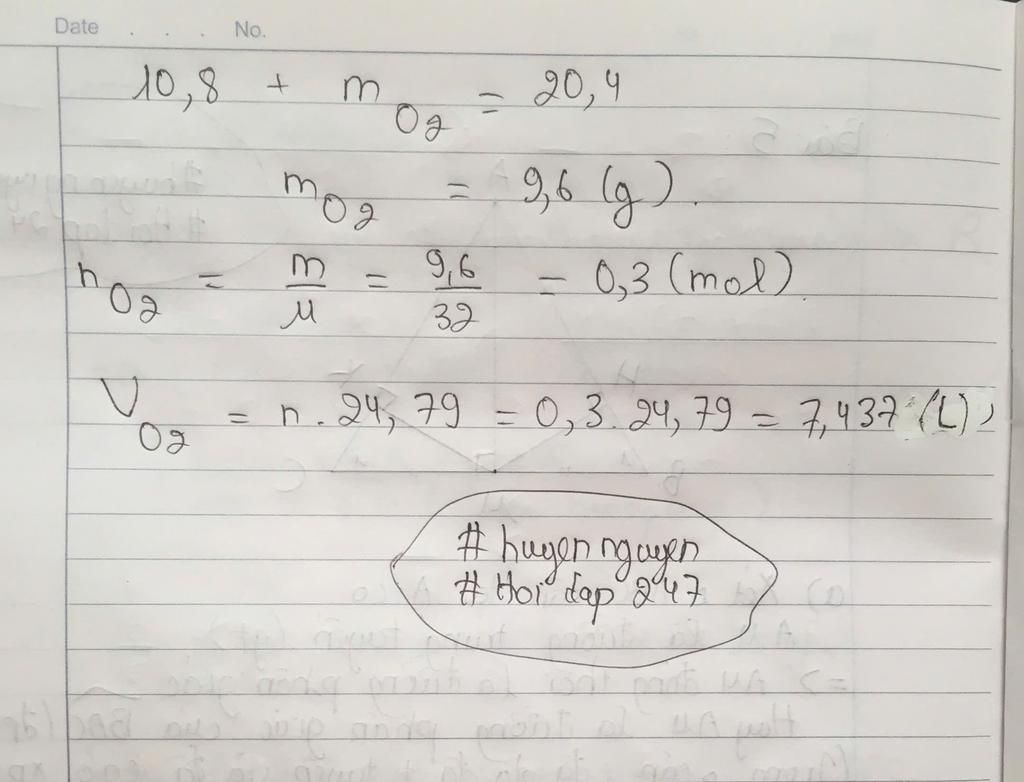 Date . . . . No.
10,8 + m O2 = 20,4
m O2 = 9,6 (g).
n O2 = m/M = 9,6/32 = 0,3 (mol).
V O2 = n . 24,79 = 0,3 . 24,79 = 7,437 (L),
# huyen nguyen
# Hoi dap 247